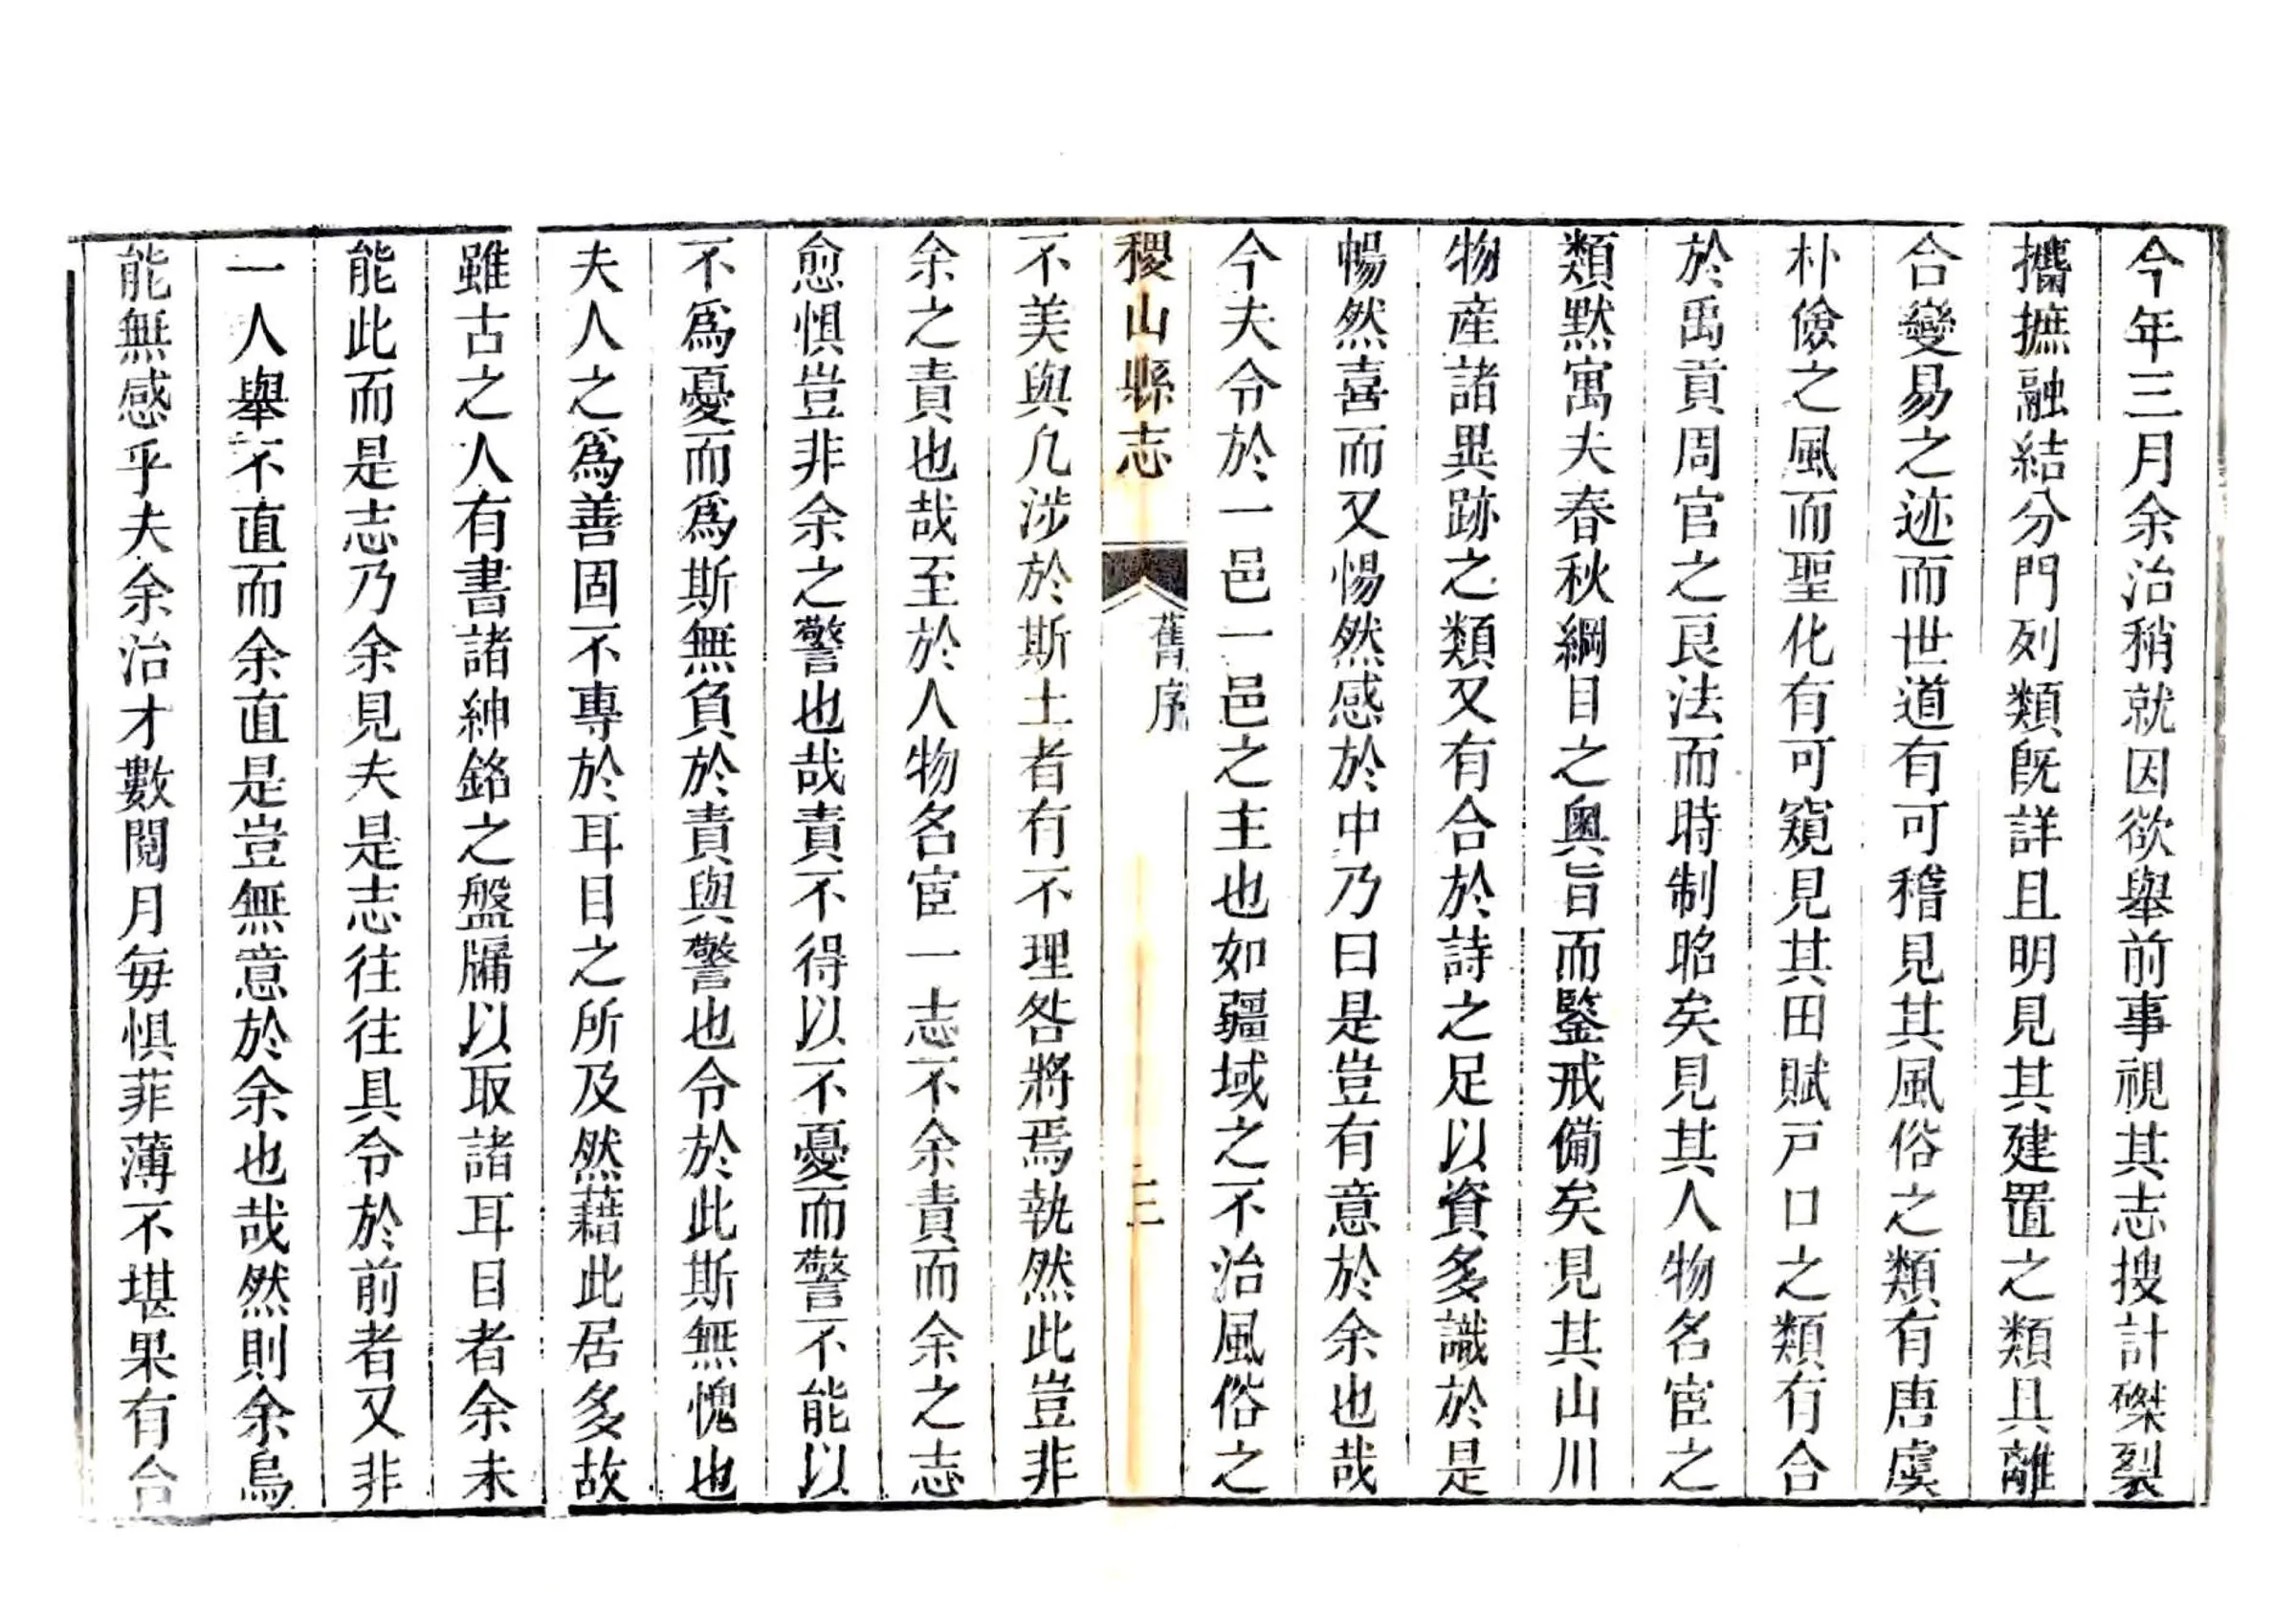 今年三月余治稍就因欲舉前事視其志搜計磔裂
攟摭融結分門列類旣詳且明見其建置之類具離
合變易之迹而世道有可稽見其風俗之類有唐虞
朴儉之風而聖化有可窺見其田賦戸口之類有合
於禹貢周官之良法而時制昭矣見其人物名宦之
類黙寓夫春秋綱目之奧旨而鑒戒備矣見其山川
物產諸異跡之類又有合於詩之足以資多識於是
暢然喜而又惕然感於中乃曰是豈有意於余也哉
今夫令於一邑一邑之主也如疆域之不治風俗之
稷山縣志
舊序
三
不美與凡涉於斯土者有不理咎將焉執然此豈非
余之責也哉至於人物名宦一志不余責而余之志
愈惧豈非余之警也哉責不得以不憂而警不能以
不爲憂而爲斯無負於責與警也令於此斯無愧也
夫人之爲善固不專於耳目之所及然藉此居多故
雖古之人有書諸紳銘之盤牖以取諸耳目者余未
能此而是志乃余見夫是志往往具令於前者又非
一人舉不直而余直是豈無意於余也哉然則余烏
能無感乎夫余治才數閱月每惧菲薄不堪果有合